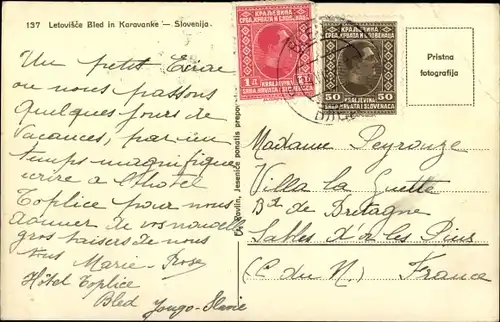 137 Letovišče Bled in Karavanke — Slovenija.
Un petit
ou nous passons
quelques jours de
vacances, par un
temps magnifique
écrire à l'hotel
Toplice pour nous
donner de vos nouvelles
gros baisers de nous
tous Marie-Rose
Hôtel Toplice
Bled Yougo-Slavie
Jesenice ponatis prepovedan
КРАЉЕВИНА
СРБА, ХРВАТА И СЛОВЕНАЦА
1 Д
KRALJEVINA
SRBA, HRVATA I SLOVENACA
КРАЉЕВИНА
СРБА, ХРВАТА И СЛОВЕНАЦА
50 50
KRALJEVINA
SRBA, HRVATA I SLOVENACA
Pristna
fotografija
Madame Peyrouze
Villa la Guette
Bd de Bretagne
Sables d'or les Pins
(C. du N.) France